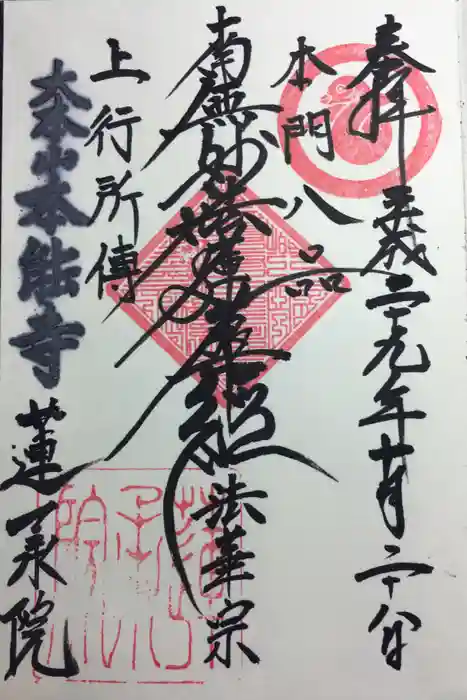 奉拝 平成二十九年十月二十八日
本門八品
南無妙法蓮華經 法華宗
上行所傳
大本山本能寺 蓮承院